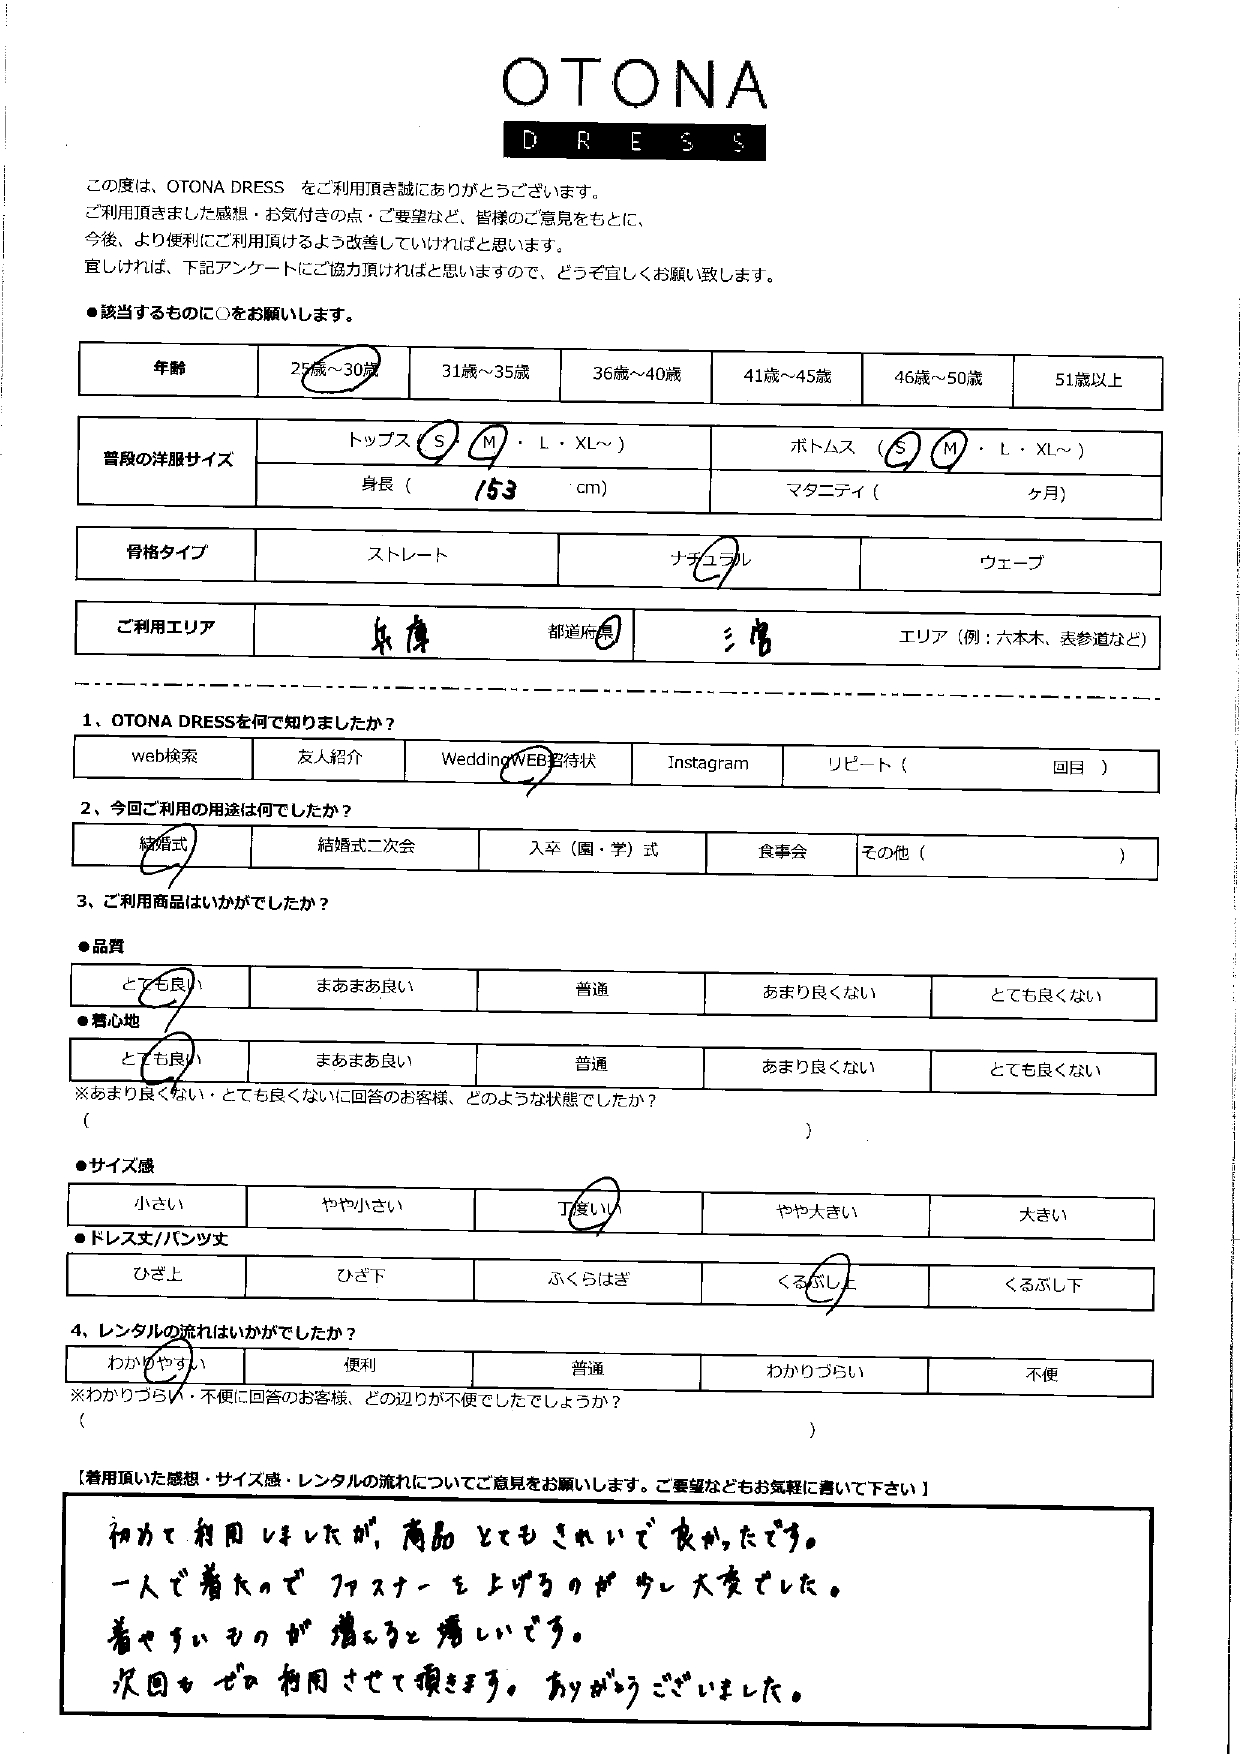 OTONA
DRESS
この度は、OTONA DRESS をご利用頂き誠にありがとうございます。
ご利用頂きました感想・お気付きの点・ご要望など、皆様のご意見をもとに、
今後、より便利にご利用頂けるよう改善していければと思います。
宜しければ、下記アンケートにご協力頂ければと思いますので、どうぞ宜しくお願い致します。
●該当するものに○をお願いします。
年齢 25歳～30歳 31歳～35歳 36歳～40歳 41歳～45歳 46歳～50歳 51歳以上
普段の洋服サイズ トップス（S・M・L・XL～） ボトムス（S・M・L・XL～）
身長（ 153 cm） マタニティ（ ヶ月）
骨格タイプ ストレート ナチュラル ウェーブ
ご利用エリア 兵庫 都道府県 三宮 エリア（例：六本木、表参道など）
1、OTONA DRESSを何で知りましたか？
web検索 友人紹介 WeddingWEB招待状 Instagram リピート（ 回目 ）
2、今回ご利用の用途は何でしたか？
結婚式 結婚式二次会 入卒（園・学）式 食事会 その他（ ）
3、ご利用商品はいかがでしたか？
●品質
とても良い まあまあ良い 普通 あまり良くない とても良くない
●着心地
とても良い まあまあ良い 普通 あまり良くない とても良くない
※あまり良くない・とても良くないに回答のお客様、どのような状態でしたか？
（ ）
●サイズ感
小さい やや小さい 丁度いい やや大きい 大きい
●ドレス丈/パンツ丈
ひざ上 ひざ下 ふくらはぎ くるぶし上 くるぶし下
4、レンタルの流れはいかがでしたか？
わかりやすい 便利 普通 わかりづらい 不便
※わかりづらい・不便に回答のお客様、どの辺りが不便でしたでしょうか？
（ ）
【着用頂いた感想・サイズ感・レンタルの流れについてご意見をお願いします。ご要望などもお気軽に書いて下さい】
初めて利用しましたが、商品とてもきれいで良かったです。
一人で着たのでファスナーを上げるのが少し大変でした。
着やすいものが増えると嬉しいです。
次回もぜひ利用させて頂きます。ありがとうございました。